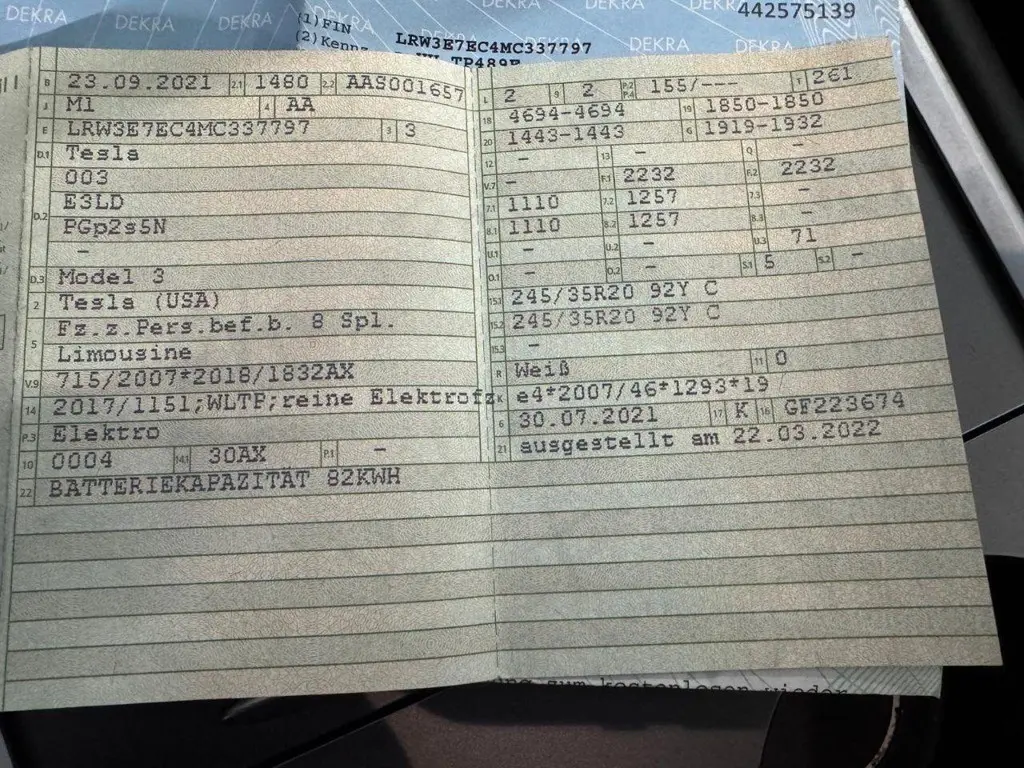 DEKRA DEKRA DEKRA DEKRA
442575139
(1)FIN LRW3E7EC4MC337797
DEKRA DEKRA DEKRA DEKRA
B 23.09.2021 2.1 1480 2.2 AAS001657
J M1 4 AA
E LRW3E7EC4MC337797 3 3
D.1 Tesla
003
D.2 E3LD
PGp2s5N
-
D.3 Model 3
2 Tesla (USA)
5 Fz.z.Pers.bef.b. 8 Spl.
Limousine
V.9 715/2007*2018/1832AX
14 2017/1151;WLTP;reine Elektrofz
P.3 Elektro
10 0004 14.1 30AX P.1 -
22 BATTERIEKAPAZITÄT 82KWH
L 2 9 2 P.2 P.4 155/--- T 261
18 4694-4694 19 1850-1850
20 1443-1443 G 1919-1932
12 - 13 - Q -
V.7 - F.1 2232 F.2 2232
7.1 1110 7.2 1257 7.3 -
8.1 1110 8.2 1257 8.3 -
U.1 - U.2 - U.3 71
O.1 - O.2 - S.1 5 S.2 -
15.1 245/35R20 92Y C
15.2 245/35R20 92Y C
15.3 -
R Weiß 11 0
K e4*2007/46*1293*19
6 30.07.2021 17 K 16 GF223674
21 ausgestellt am 22.03.2022
zum kostenlosen wieder